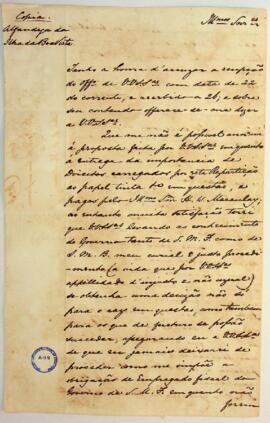 Copia.
Alfandega da
Ilha da Boavista
Illmos Snres
Tenho a honra d'accuzar a recepção
do Offo de V.V.S.Sas com data de 25
do corrente, e recebido a 26; e sobre
seu contendo offerece-se-me dizer
a V.V.S.Sas
Que me não é possivel annuir
á proposta feita por V.V.S.Sas em quanto
á entrega da importancia de
Direitos carregados por esta Repartição
ao papel tinta &a em questão, e
pagos pelo Illmo Snr H. W. Macaulay;
no entanto muita satisfação terei
que V.V.S.Sas levando ao conhecimento
do Governo tanto de S. M. F. como de
S. M. B. meu curial e justo procedi-
mento (a inda que por V.V.S.Sas
appellidado d'injusto e não usual)
se obtenha uma decizão não só
para o cazo em questão, como tambem
para os que de futuro se possão
succeder, assegurando eu a V.V.S.Sas
de que eu jamais deixarei de
proceder como me impõe a
obrigação de Empregado fiscal do
Governo de S. M. F. em quanto não
forem